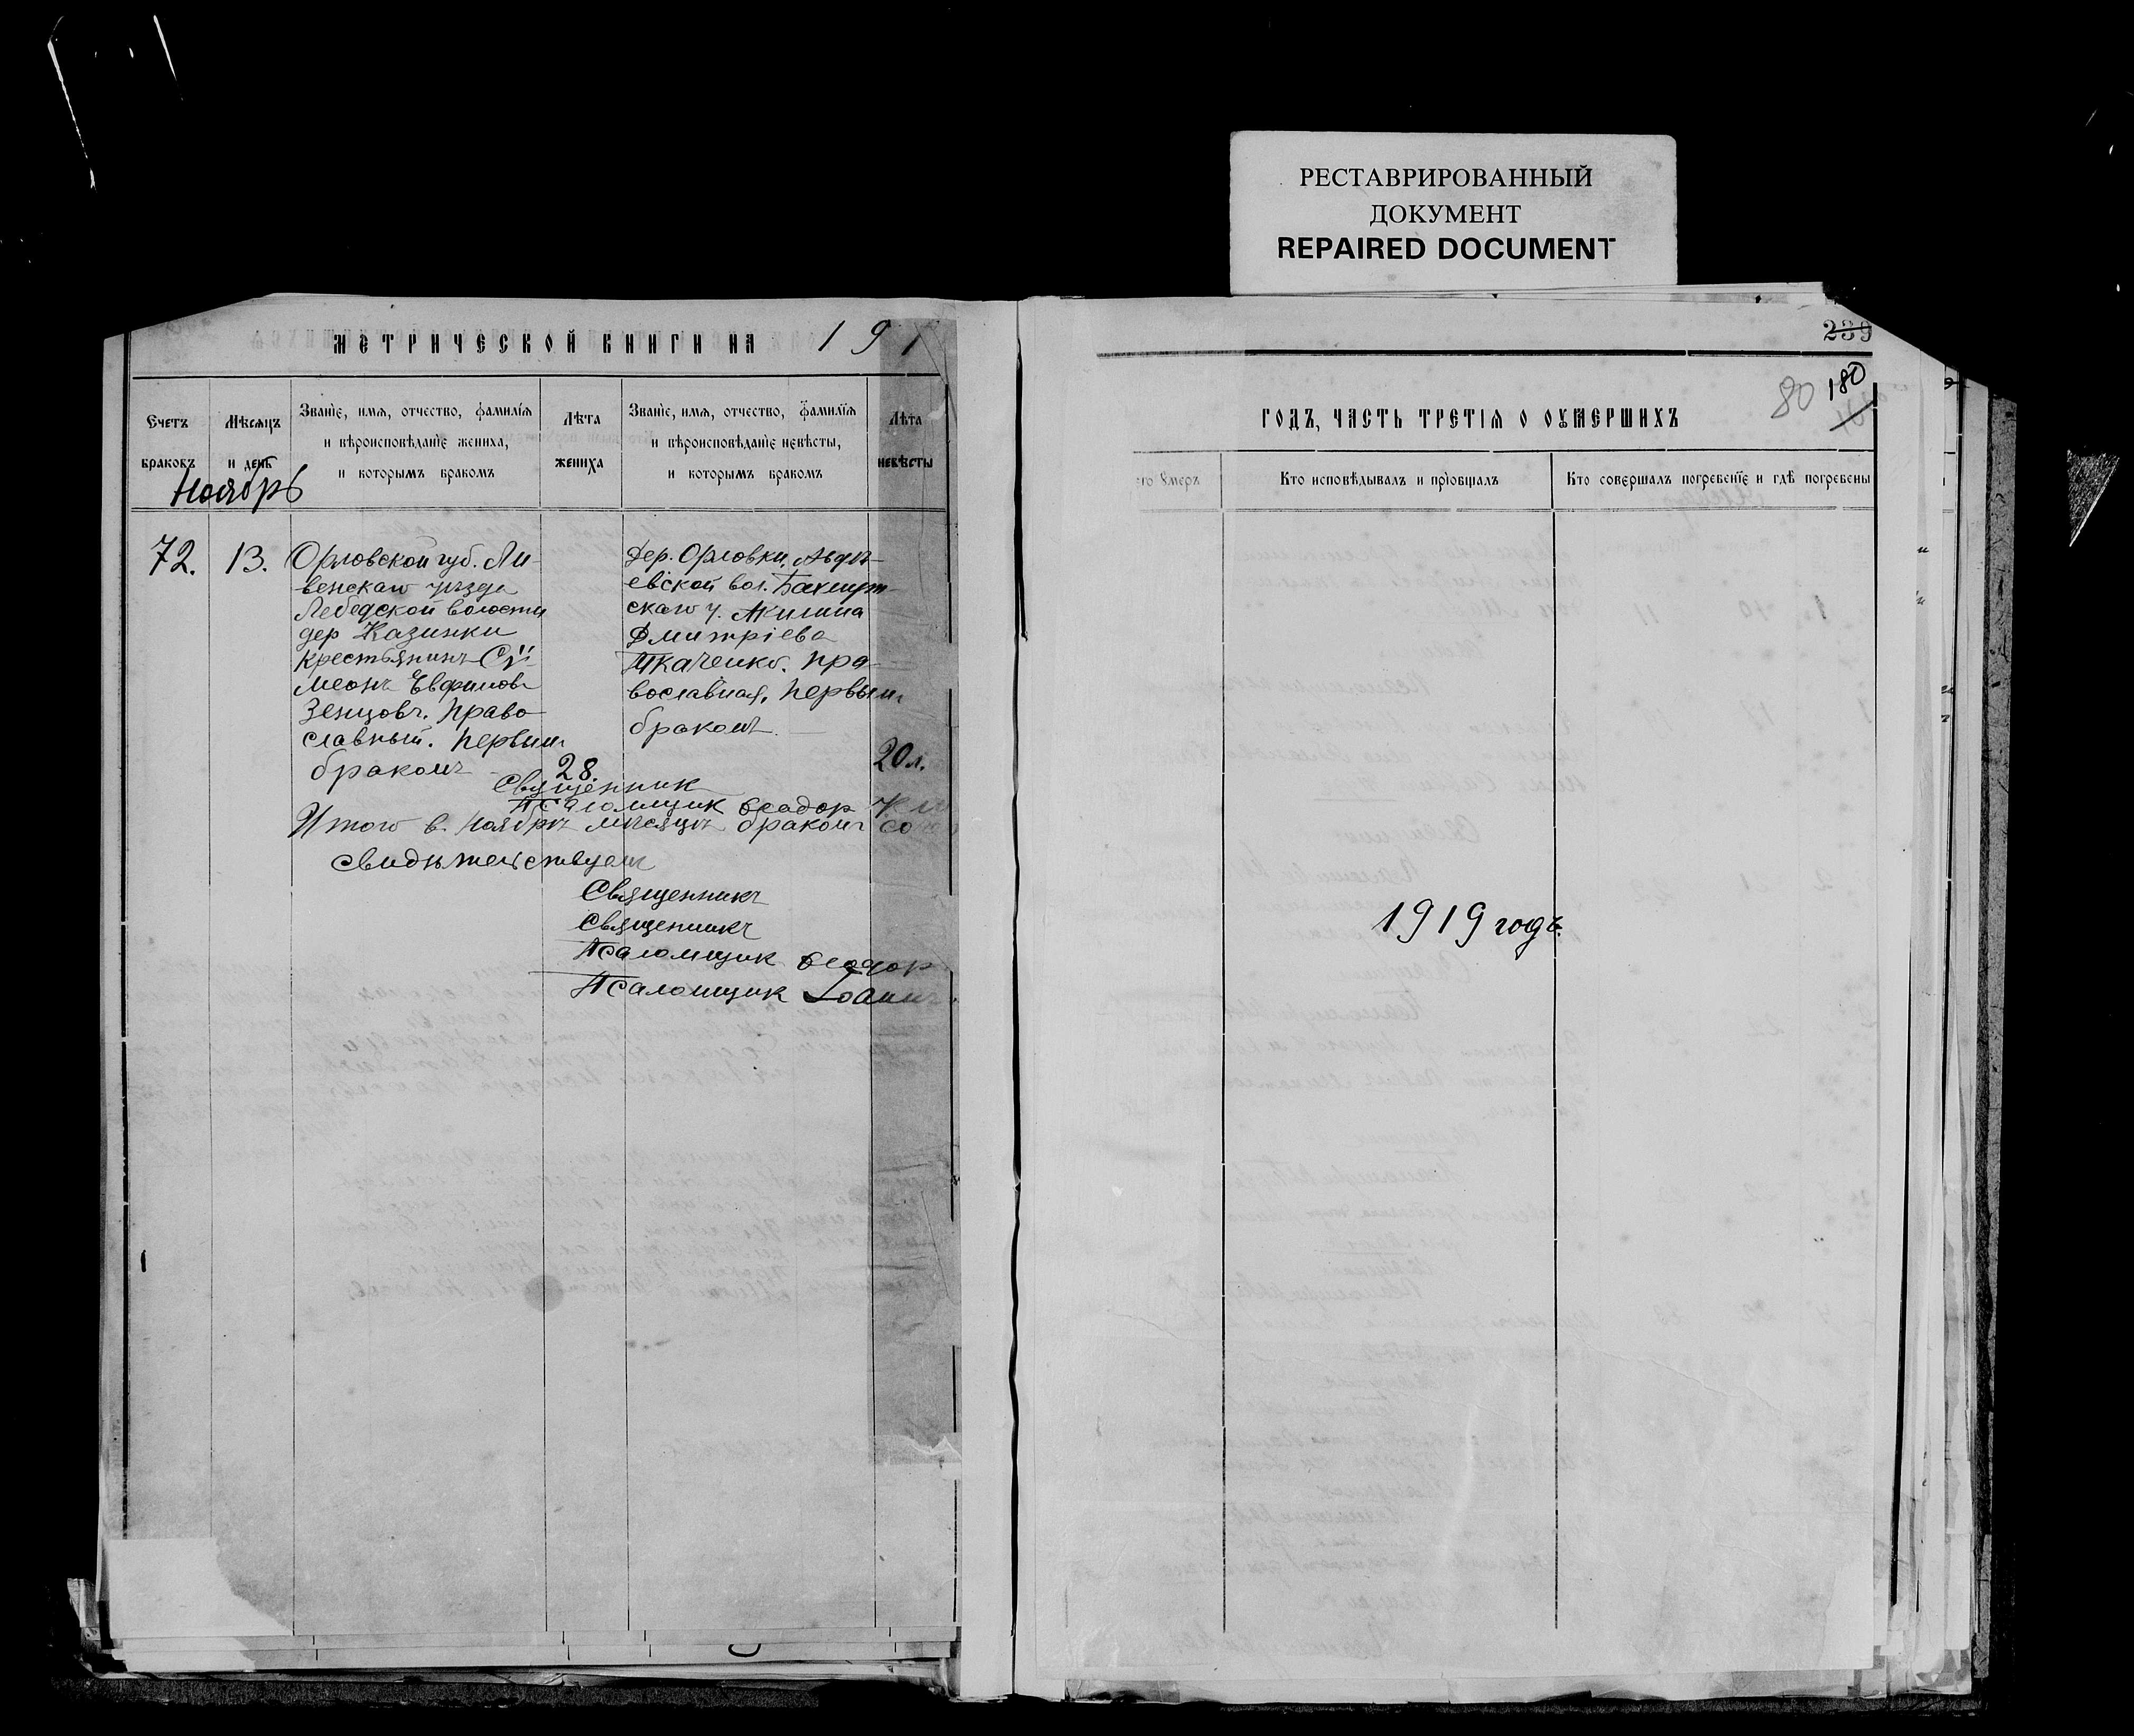 РЕСТАВРИРОВАННЫЙ
ДОКУМЕНТ
REPAIRED DOCUMENT
МЕТРИЧЕСКОЙ КНИГИ НА 191
Счетъ браковъ
Мѣсяцъ и день
Званіе, имя, отчество, фамилія
и вѣроисповѣданіе жениха,
и которымъ бракомъ
Лѣта
жениха
Званіе, имя, отчество, фамилія
и вѣроисповѣданіе невѣсты,
и которымъ бракомъ
Лѣта
невѣсты
Ноябрь
72. 13.
Орловской губ. Ли-
венскаго уѣзда
Лебедской волости
дер Казинки
крестьянинъ Сѵ-
меонъ Евфимовъ
Зенцовъ. Право-
славный. Первымъ
бракомъ
28.
Дер. Орловки,
евской вол. Бахмут-
скаго у. Акилина
Дмитріева
Ткаченко. Пра-
вославная, Первымъ
бракомъ.
20 л.
Священник
Псаломщик Ѳеодор
Итого в. Ноябрѣ мѣсяцѣ браком со
Свидѣтельствуем
Священникъ
Священникъ
Псаломщик Ѳеодор
Псаломщик Іоаннъ
239
80 180
ГОДЪ, ЧАСТЬ ТРЕТІЯ О ОУМЕРШИХЪ
го умеръ
Кто исповѣдывалъ и пріобщалъ
Кто совершалъ погребеніе и гдѣ погребены
1919 годъ.